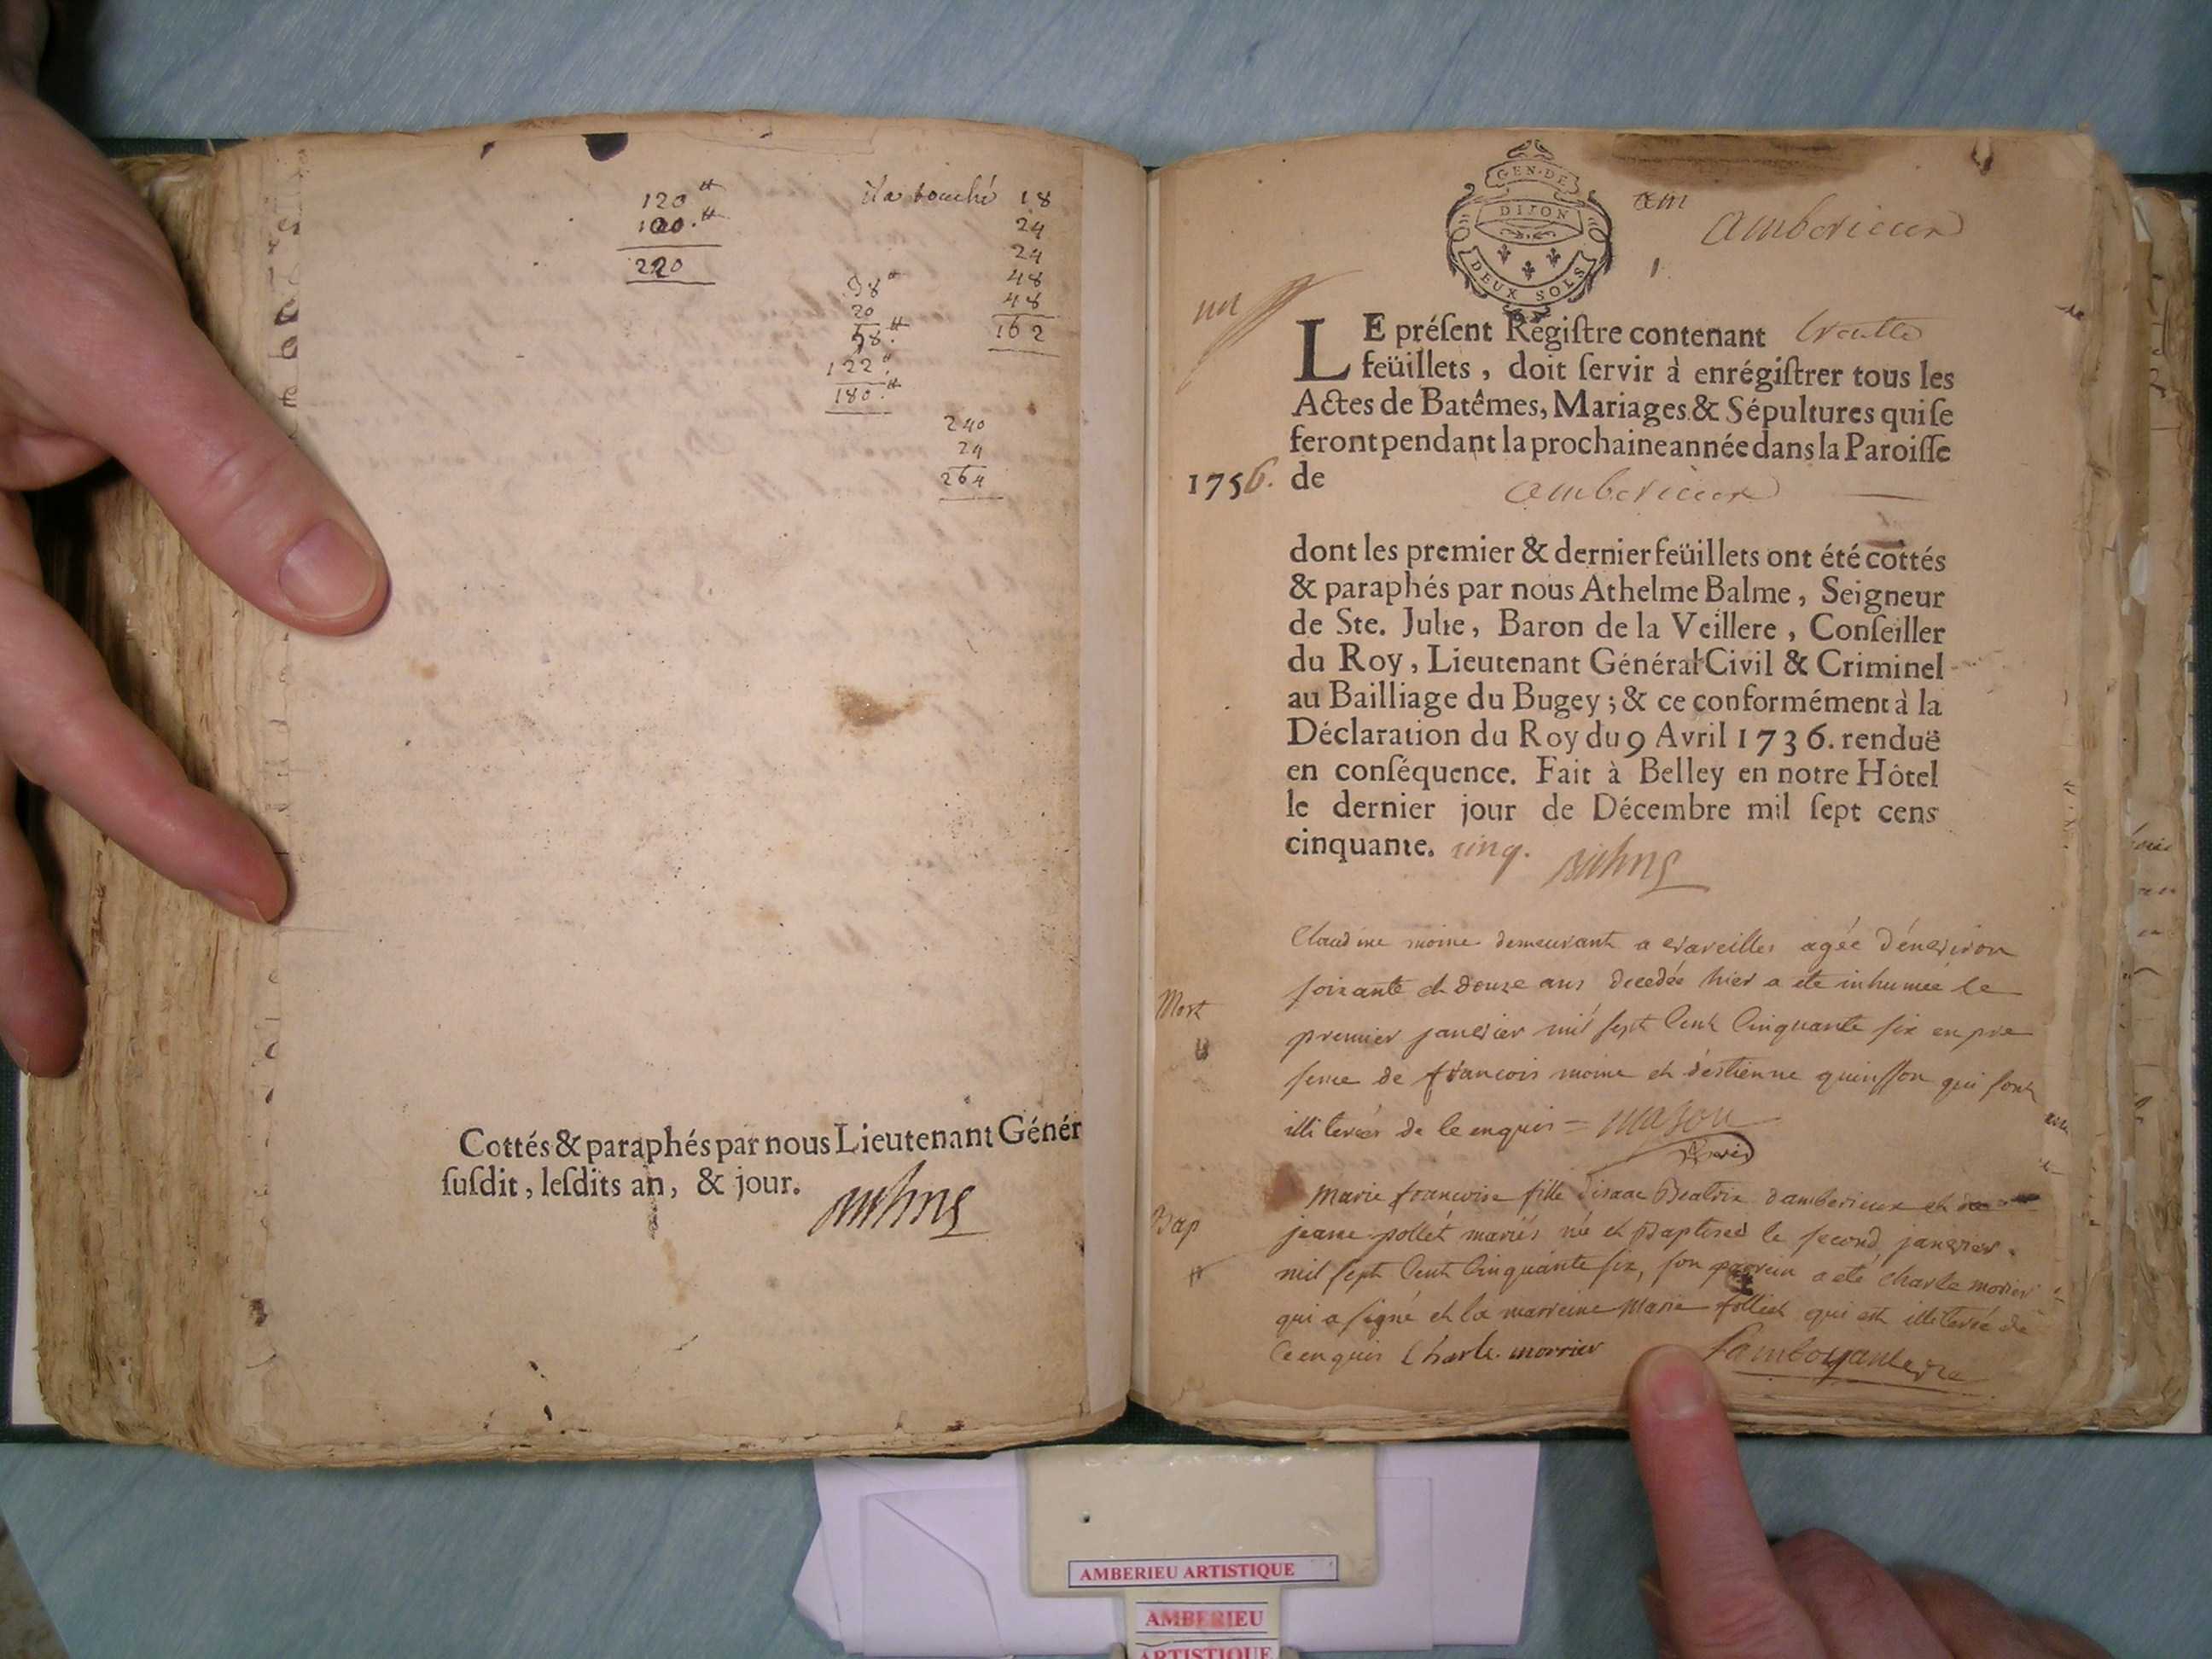 120 ₶
100. ₶
220
il a touché 18
24
24
48
48
162
98 ₶
20
58. ₶
122 ₶
180. ₶
240
24
264
Cottés & paraphés par nous Lieutenant Génér
ſuſdit, leſdits an, & jour.
GEN·DE
DIJON
DEUX SOLS
amberieux
1
un
LE préſent Regiſtre contenant trente
feüillets, doit ſervir à enrégiſtrer tous les
Actes de Batêmes, Mariages & Sépultures qui ſe
feront pendant la prochaine année dans la Paroiſſe
1756. de amberieux
dont les premier & dernier feüillets ont été cottés
& paraphés par nous Athelme Balme, Seigneur
de Ste. Julie, Baron de la Veillere, Conſeiller
du Roy, Lieutenant Général Civil & Criminel
au Bailliage du Bugey; & ce conformément à la
Déclaration du Roy du 9 Avril 1736. renduë
en conſéquence. Fait à Belley en notre Hôtel
le dernier jour de Décembre mil ſept cens
cinquante. cinq.
Claudine moine demeurant a vareilles agée d'énviron
soixante et douze ans decedée hier a ete inhumée le
Mort
premier janvier mil sept Cent Cinquante six en pre
sence de francois moine et d'estienne quinsson qui sont
illiterés de ce enquis = Mason
Marie francoise fille d'isaac Beatrix d'amberieux et de
Bap
jeane pollet mariés née et Baptisée le second janvier
mil sept Cent Cinquante six, son parrein a ete charle morier
qui a signé et la marreine Marie follict qui est illiterée de
Ce enquis Charle. morrier
AMBERIEU ARTISTIQUE
AMBERIEU
ARTISTIQUE